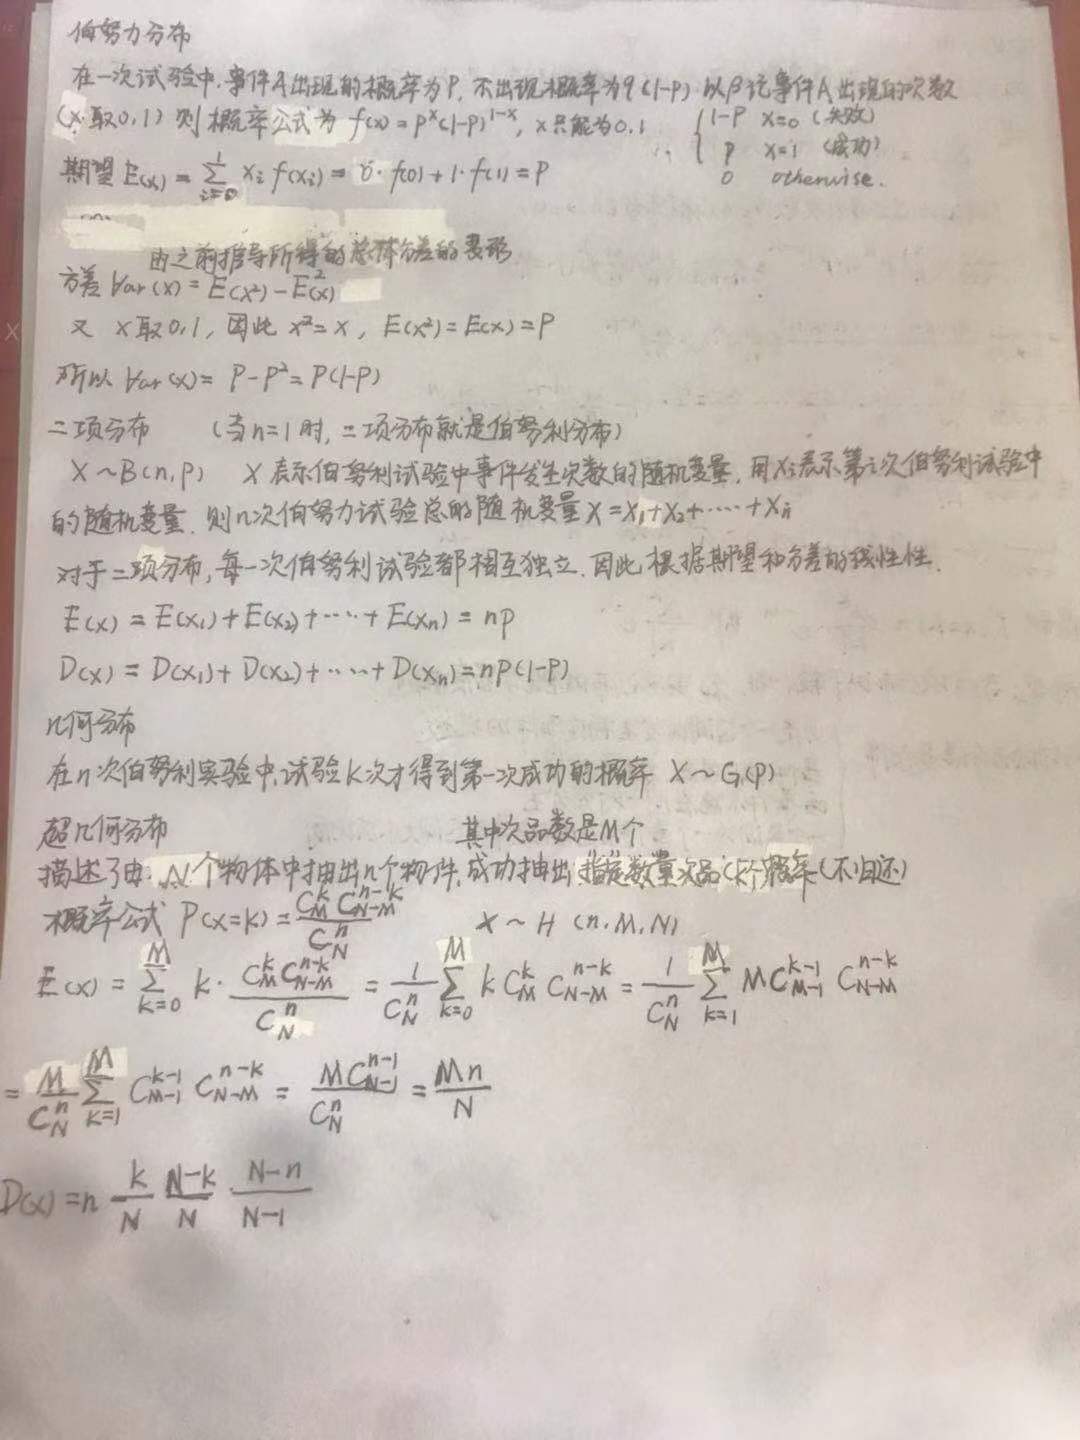 伯努力分布
在一次试验中,事件A出现的概率为P,不出现概率为q(1-p) 以β记事件A出现的次数
(x取0,1) 则概率公式为 f(x)=p^x(1-p)^{1-x}, x只能为0.1 ∴ { 1-P x=0 (失败)
P x=1 (成功)
0 otherwise.
期望 E(x) = \sum_{i=0}^{1} x_i f(x_i) = 0·f(0)+1·f(1)=P
由之前推导所得的总体方差的变形
方差 Var(x) = E(x²)-E²(x)
又 x取0,1, 因此 x²=x, E(x²)=E(x)=P
所以 Var(x)= P-P²=P(1-P)
二项分布 (当n=1时,二项分布就是伯努利分布)
X~B(n,p) X表示伯努利试验中事件发生次数的随机变量,用Xi表示第i次伯努利试验中
的随机变量.则n次伯努力试验总的随机变量X=X₁+X₂+……+Xn
对于二项分布,每一次伯努利试验都相互独立.因此根据期望和方差的线性性.
E(x) = E(x₁)+E(x₂)+……+E(xn) = np
D(x) = D(x₁)+D(x₂)+……+D(xn)=np(1-p)
几何分布
在n次伯努利实验中,试验K次才得到第一次成功的概率 X~G(p)
超几何分布 其中次品数是M个
描述了由N个物体中抽出n个物件,成功抽出指定数量次品(k个)概率(不归还)
概率公式 P(x=k)=\frac{C_M^k C_{N-M}^{n-k}}{C_N^n} X~H (n.M.N)
E(x) = \sum_{k=0}^{M} k·\frac{C_M^k C_{N-M}^{n-k}}{C_N^n} = \frac{1}{C_N^n} \sum_{k=0}^{M} k C_M^k C_{N-M}^{n-k} = \frac{1}{C_N^n} \sum_{k=1}^{M} M C_{M-1}^{k-1} C_{N-M}^{n-k}
= \frac{M}{C_N^n} \sum_{k=1}^{M} C_{M-1}^{k-1} C_{N-M}^{n-k} = \frac{M C_{N-1}^{n-1}}{C_N^n} = \frac{Mn}{N}
D(x) = n \frac{k}{N} \frac{N-k}{N} \frac{N-n}{N-1}